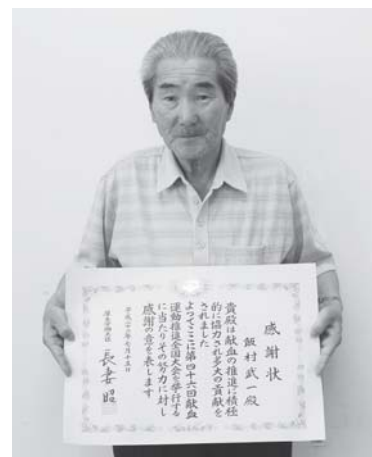 感謝状
飯村武一殿
貴殿は献血の推進に積極
的に協力され多大の貢献を
されました
よってここに第四十六回献血
運動推進全国大会を挙行する
に当たりその努力に対し
感謝の意を表します
平成二十二年七月十五日
厚生労働大臣 長妻昭